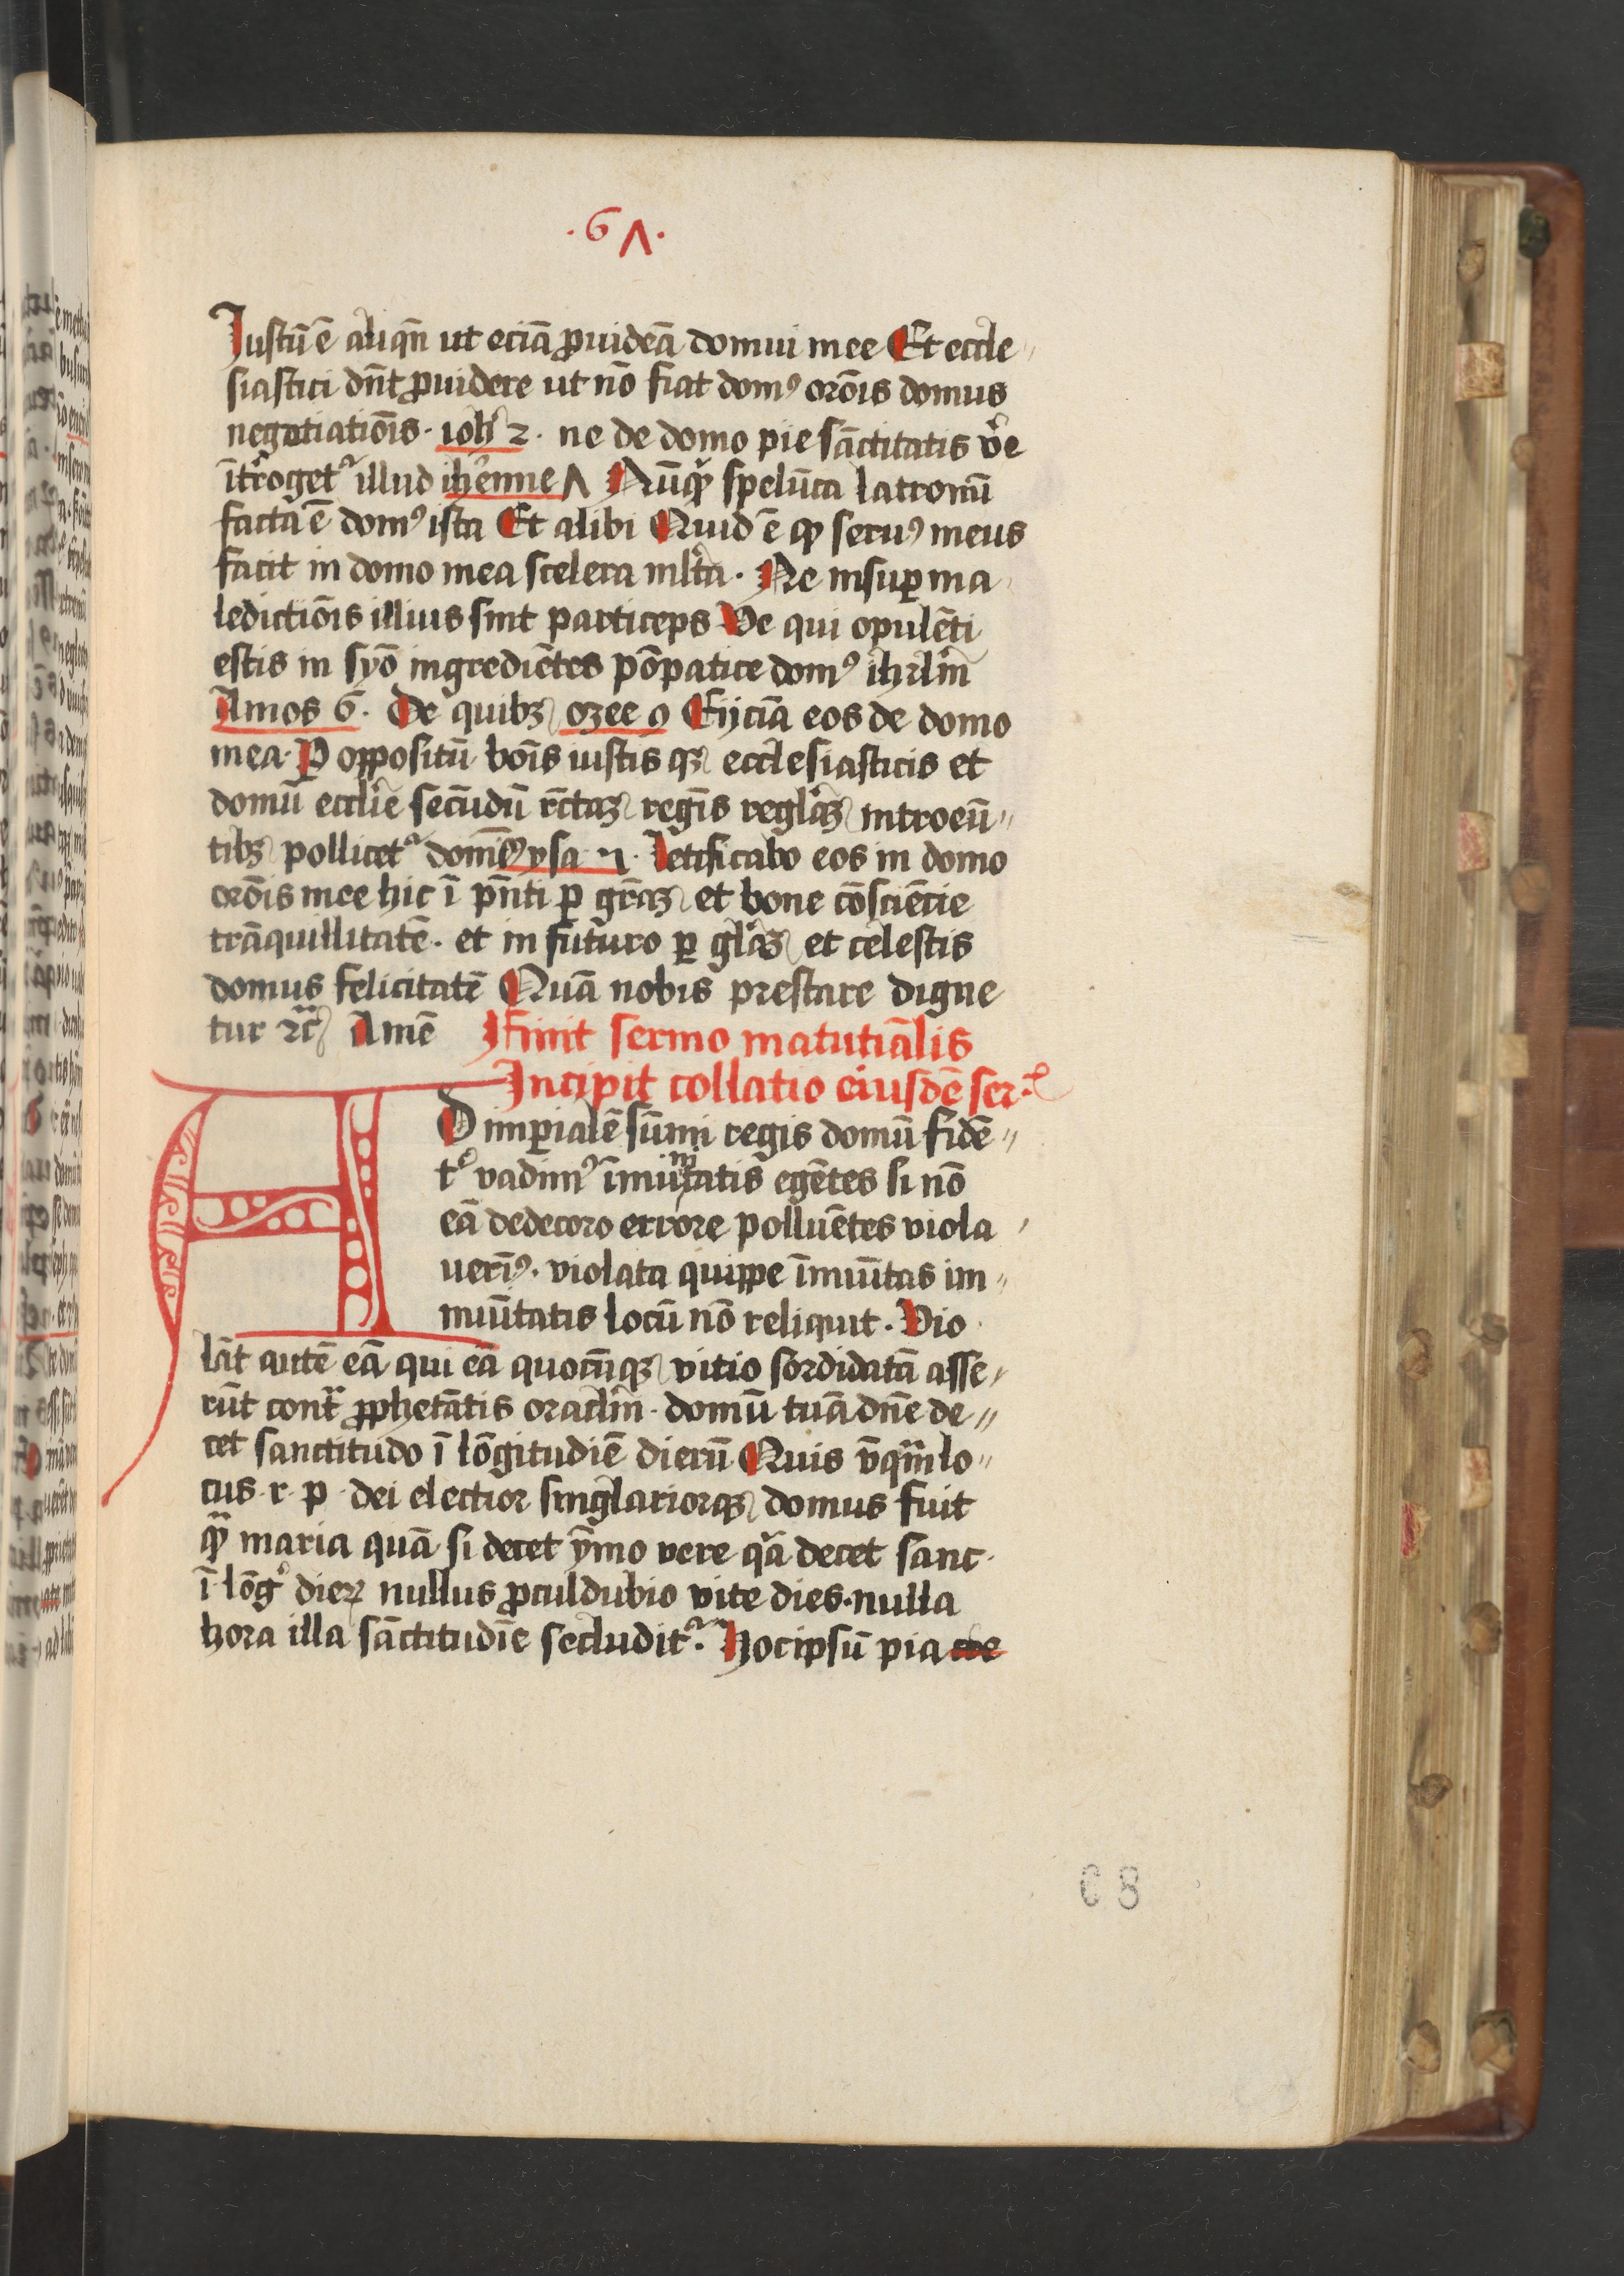 ·6Λ·
Iustū ē aliqn̄ ut eciā ꝓuideā domui mee Et eccle
siastici dn̄t ꝓuidere ut nō fiat domꝰ orōis domus
negotiatiōis · ioh 2 · ne de domo pie sāctitatis v̾e
īt̾rogetᷣ illud ih̾emie Λ Nūqͥd spelūca latronū
facta ē domꝰ ista Et alibi Quid ē ꝙ seruꝰ meus
facit in domo mea scelera ml̾ta · Ne insuꝑ ma
ledictiōis illius sint particeps Ve qui opulēti
estis in syō ingrediētes pōpatice domꝰ ihrl̾m
Amos 6 · De quibꝫ ozee 9 Eijciā eos de domo
mea · P oppositū bōis iustis qꝫ ecclesiasticis et
domū eccl̾ie secūdū rc̄taꝫ regīs regl̾aꝫ introeū
tibꝫ pollicetᷣ domīꝰ ysa · Letificabo eos in domo
orōis mee hic ī pn̄ti ꝑ gr̄aꝫ et bone cōsciēcie
trāquillitatē · et in futuro ꝑ gl̾aꝫ et celestis
domus felicitatē Quā nobis prestare digne
tur ꝛc̄ Amē Finit sermo matutīalis
Incipit collatio eiusdē ser·
AD imꝑialē sūmi regis domū fidē
tᷣ vadimꝰ īmūītatis egētes si nō
eā dedecoro errore polluētes viola
uerīꝰ · violata quippe īmūītas im
mūītatis locū nō reliquit · Vio
lāt autē eā qui eā quocūqꝫ vitio sordidatā asse
rūt contᷓ ꝓphetātis oracl̾m · domū tuā dn̄e de
cet sanctitudo ī lōgitudīe dierū Quis vn̄qᷓm lo
cus · r · p · dei electior singlariorqꝫ domus fuit
qᷓ maria quā si decet ȳmo vere qᷓa decet sanc·
ī lōgᷣ dieꝝ nullus ꝓculdubio vite dies · nulla
hora illa sāctitudīe secluditᷣ · Hocipsū pia de
68